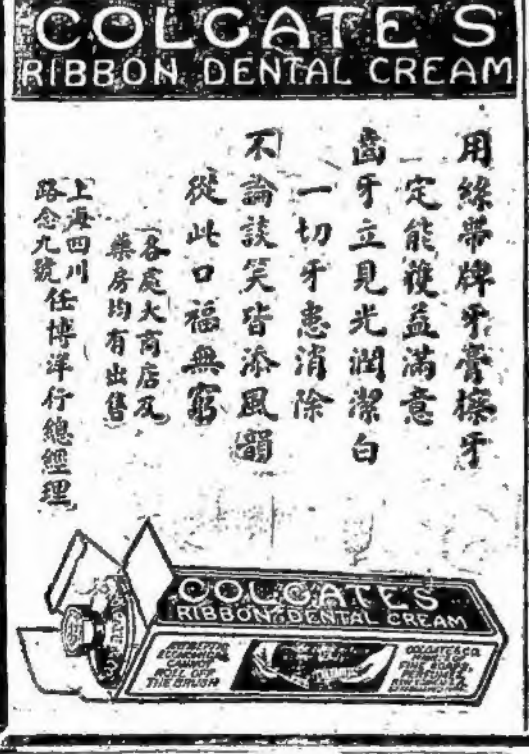 COLGATE'S
RIBBON DENTAL CREAM
用絲帶牌牙膏擦牙
一定能獲益滿意
齒牙立見光潤潔白
一切牙患消除
不論談笑皆添風韻
從此口福無窮
各處大商店及
藥房均有出售
上海四川
路念九號
任博洋行總經理
COLGATE'S
RIBBON DENTAL CREAM
ANTISEPTIC
ECONOMICAL
CANNOT
ROLL OFF
THE BRUSH
COLGATE & CO.
FINE SOAPS,
PERFUMES,